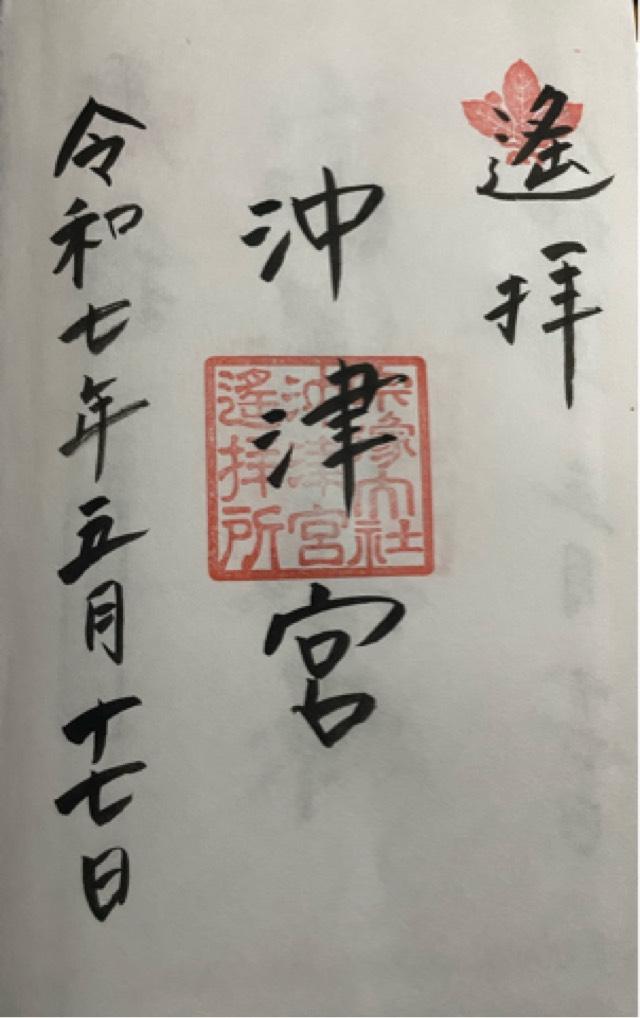 遙拝
沖津宮
宗像大社
沖津宮
遙拝所
令和七年五月十七日